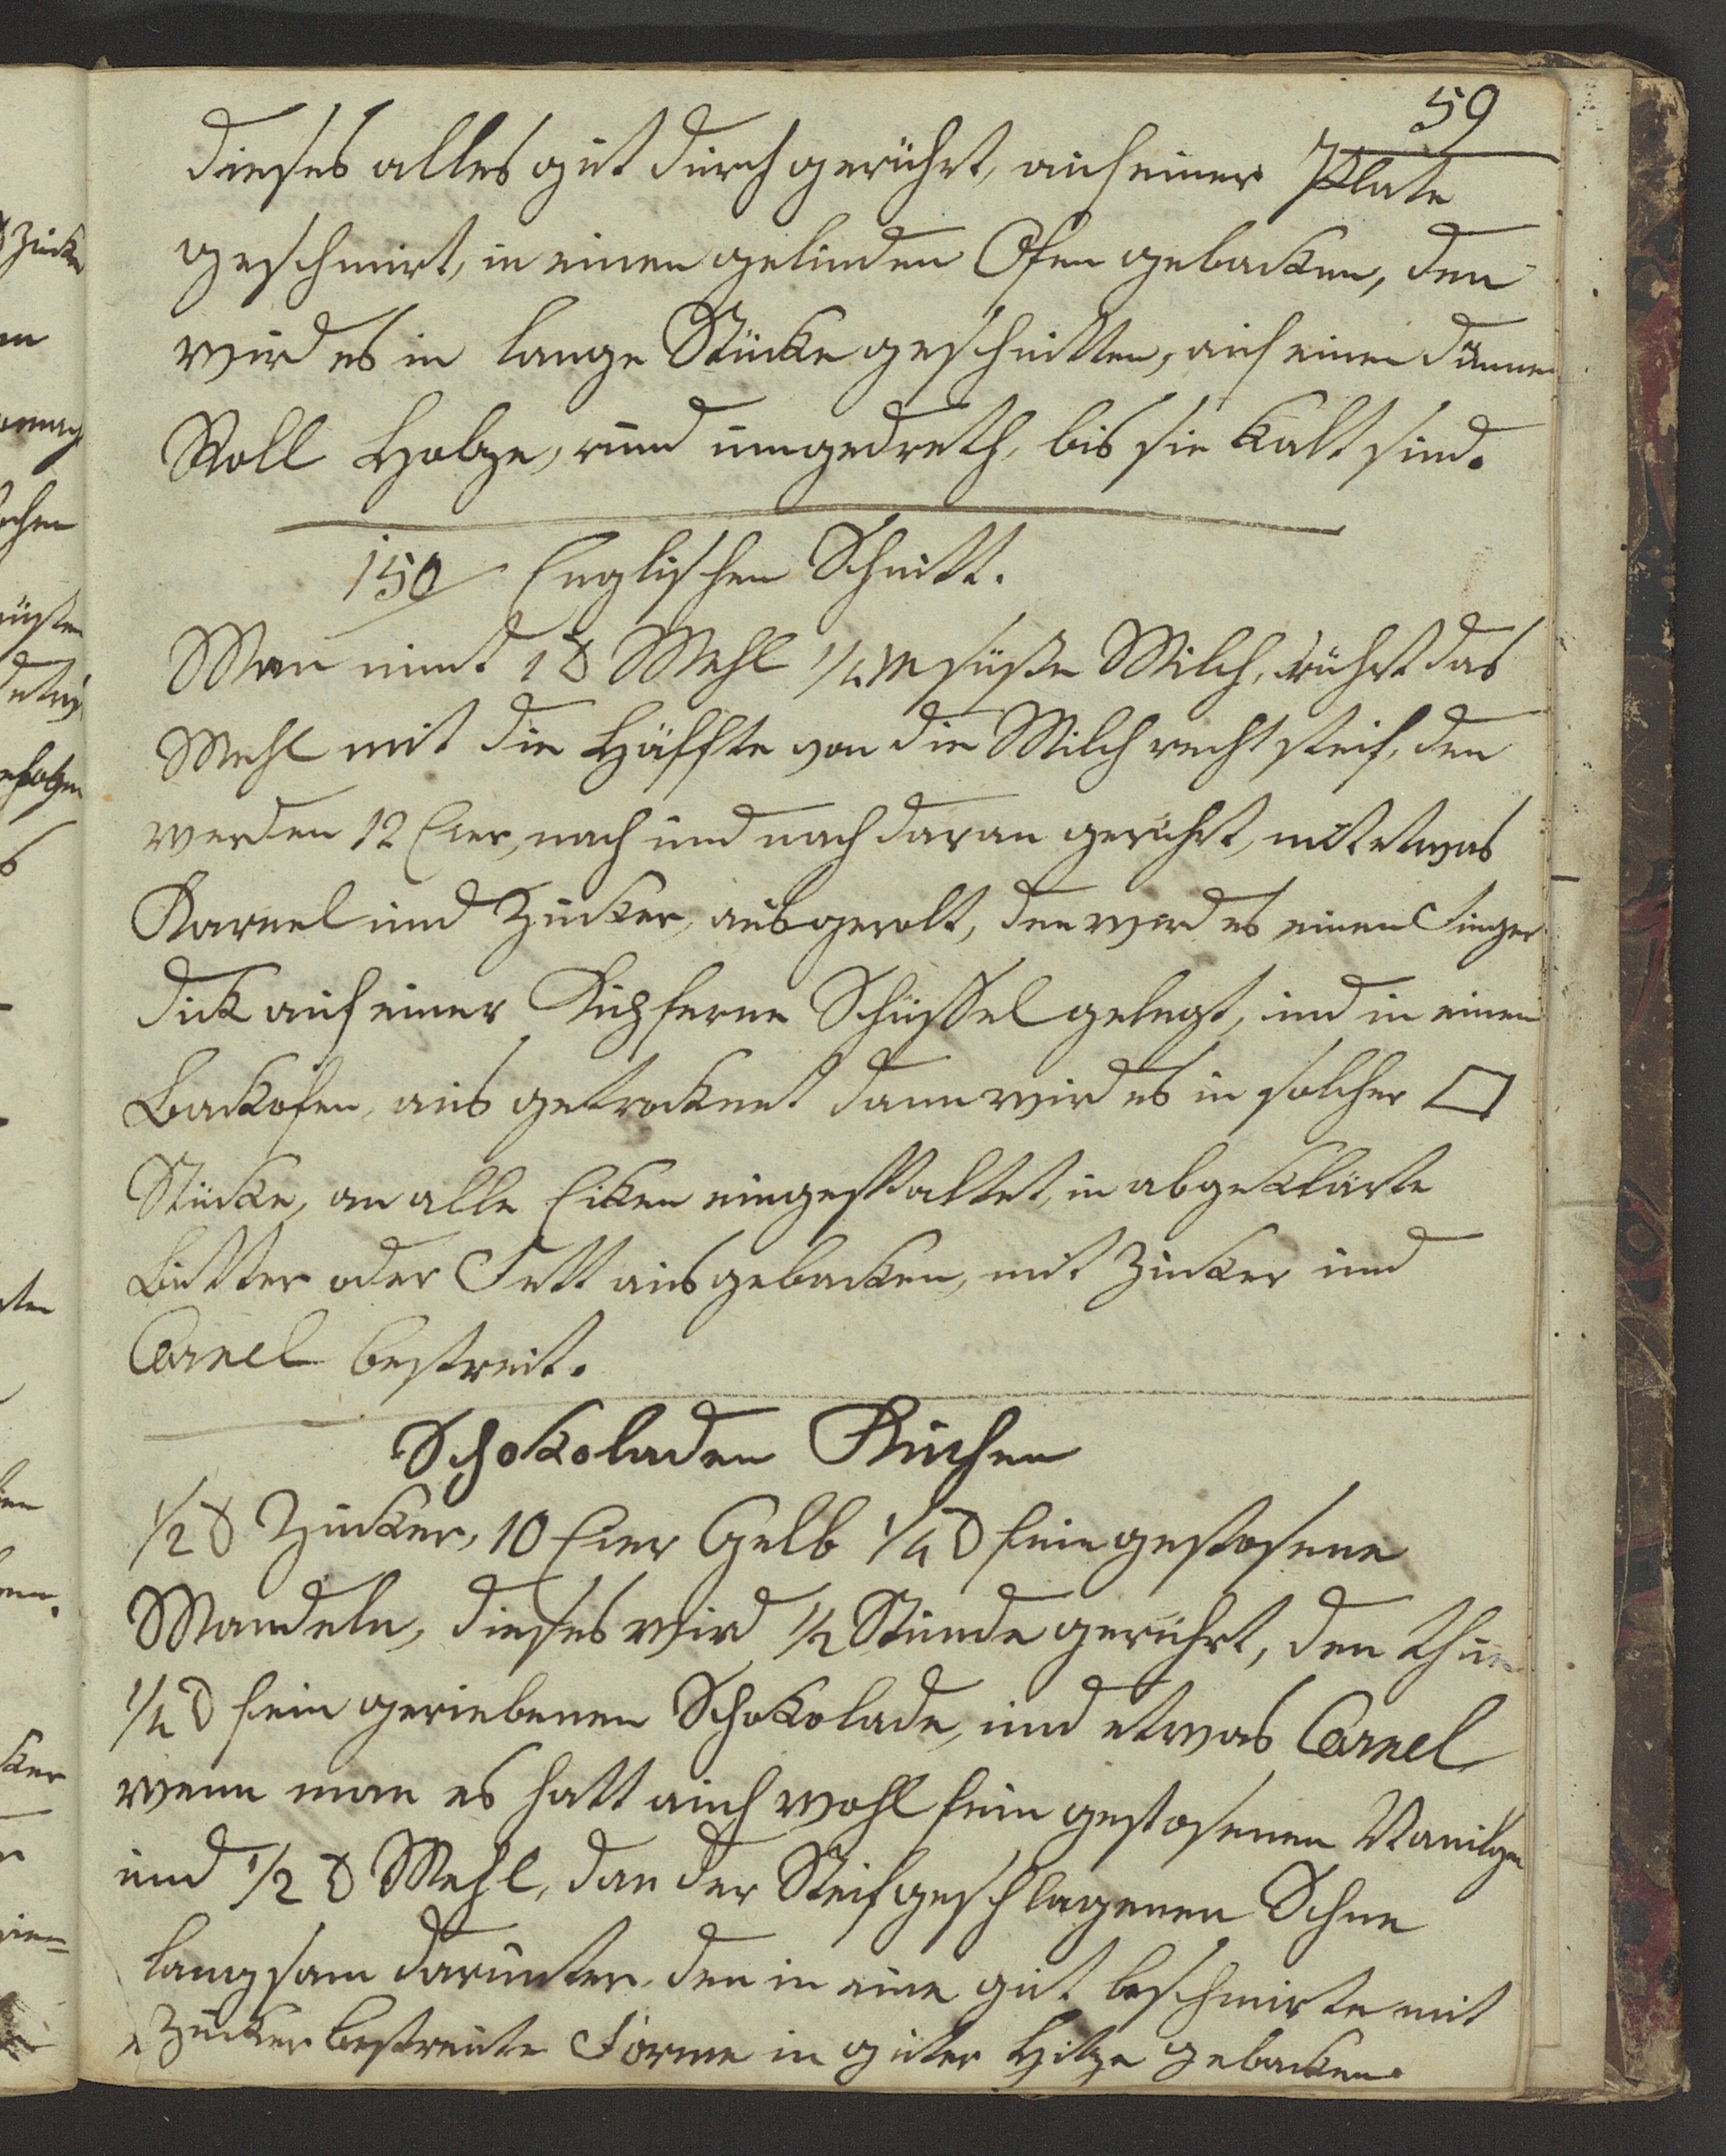 59
dieses alles gut durch gerührt, auf einer Plate
geschmirt, in einen gelinden Ofen gebacken, den
wird es in lange Stücke geschnitten, auf einen dünnen
Roll Holze, rund umgedreth, bis sie kalt sind.
150 Englischen Schnitt.
Man nimt 1 ℔ Mehl 1/4 M süße Milch, rührt das
Mehl mit die Hälffte von die Milch recht steif, den
werden 12 Eier, nach und nach daran gerührt, mit etwas
Karnel und Zucker, ausgerolt, den werd es einen Finger
dick auf einer Kupferne Schüssel gelegt, und in einen
Backofen, aus getrocknet dann wird es in solcher □
Stücke, an alle Ecken eingespaltet, in abgeklärte
Butter oder Fett ausgebacken, mit Zucker und
Carnel bestreit.
Schokoladen Kuchen
1/2 ℔ Zucker, 10 Eier Gelb 1/4 ℔ fein gestosene
Mandeln, dieses wird 1/2 Stunde gerührt, den thue
1/4 ℔ fein geriebenen Schokolade, und etwas Carnel
wenn man es hatt auch wohl fein gestosenen Vanilge
und 1/2 ℔ Mehl, dan der Steifgeschlagenen Schne
langsam darunter, den in eine gut beschmirte mit
Zucker bestreute Forme in guter Hitze gebacken.